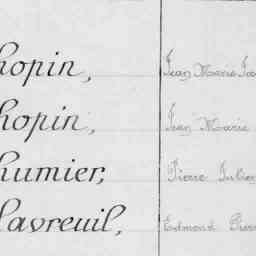 hopin, Jean Marie
hopin, Jean Marie
humier, Pierre Julien
lavreuil, Edmond Pierre